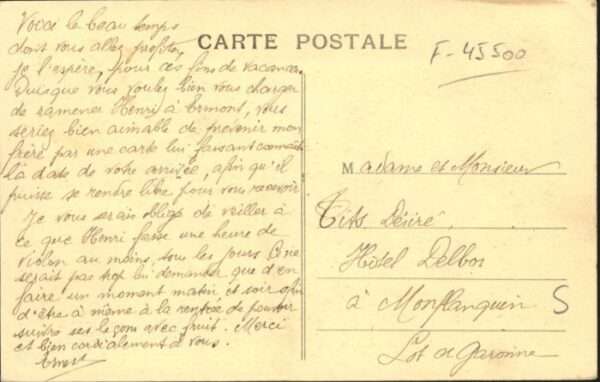 Voici le beau temps
dont vous allez profiter,
je l'espère, pour ces fins de vacances.
Puisque vous voulez bien vous charger
de ramener Henri à Ermont, vous
seriez bien aimable de prévenir mon
frère par une carte lui faisant connaître
la date de votre arrivée, afin qu'il
puisse se rendre libre pour vous recevoir
Je vous serais obligé de veiller à
ce que Henri fasse une heure de
violon au moins, tous les jours. Ce ne
serait pas trop lui demander que d'en
faire un moment matin et soir afin
d'être à même à la rentrée de pouvoir
suivre ses leçons avec fruit. Merci
et bien cordialement à vous.
Ernest
CARTE POSTALE
F-45500
Madame et Monsieur
Tits Désiré
Hôtel Delbos
à Monflanquin S
Lot et Garonne